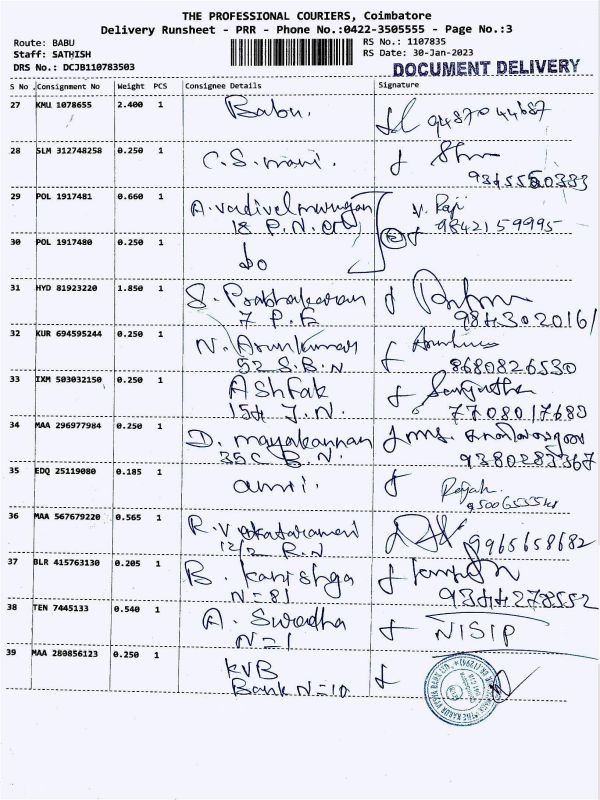 THE PROFESSIONAL COURIERS, Coimbatore
Delivery Runsheet - PRR - Phone No.:0422-3505555 - Page No.:3
Route: BABU
Staff: SATHISH
DRS No.: DCJB110783503
RS No.: 1107835
RS Date: 30-Jan-2023
DOCUMENT DELIVERY
S No Consignment No Weight PCS Consignee Details Signature
27 KMU 1078655 2.400 1 Babu. 9487044687
28 SLM 312748258 0.250 1 C.S. mani.
29 POL 1917481 0.660 1 A. Vadivelmurugan V. Raji
18 P.N. 9842159995
30 POL 1917480 0.250 1 do
31 HYD 81923220 1.850 1 S. Prabhakaran
7 P.E 9843020161
32 KUR 694595244 0.250 1 N. Arunkumar
52 S.B.N 8680826530
33 IXM 503032150 0.250 1 Ashfak
154 J.N. 7708017680
34 MAA 296977984 0.250 1 D. mayakannan ms.
35C B.N. 9380283367
35 EDQ 25119080 0.185 1
36 MAA 567679220 0.565 1 R. Venkataramani
12/2 R.N 9965658682
37 BLR 415763130 0.205 1 B. Kanishga
N=81 9344278552
38 TEN 7445133 0.540 1 A. Swadha NISIP
N=1
39 MAA 280856123 0.250 1 KVB
Bank N=10